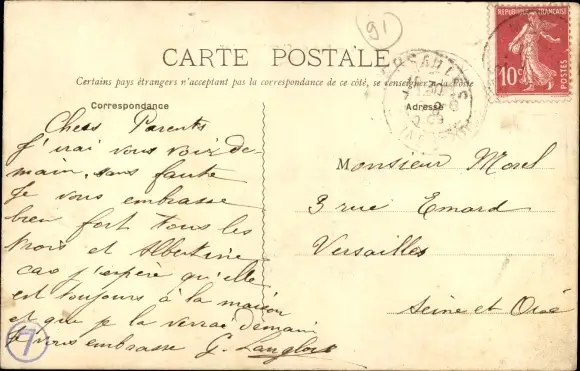 91
RÉPUBLIQUE FRANÇAISE
10c
POSTES
CARTE POSTALE
VERSAILLES
Certains pays étrangers n'acceptent pas la correspondance de ce côté, se renseigner à la Poste
Correspondance
Adresse
Chers Parents
J'irai vous voir de-
main, sans faute
Je vous embrasse
bien fort tous les
trois et Albertine
car j'espère qu'elle
est toujours à la maison
et que je la verrai demain
Je vous embrasse G. Langlois
Monsieur Morel
3 rue Emard
Versailles
Seine et Oise
7